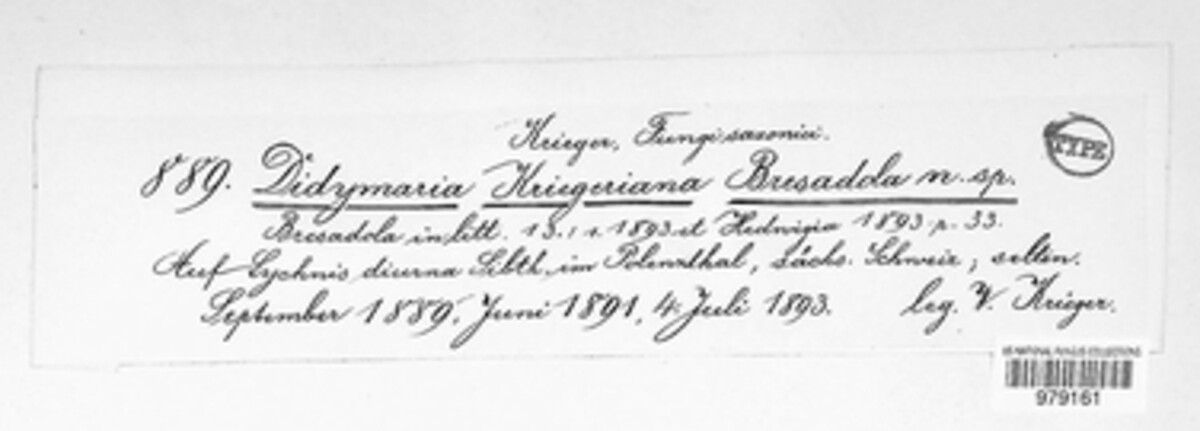 Krieger, Fungi saxonici.
TYPE
889. Didymaria Kriegeriana Bresadola n. sp.
Bresadola in litt. 1893 et Hedwigia 1893 p. 33.
Auf Lychnis diurna Sibth. im Polenzthal, sächs. Schweiz, selten.
September 1889, Juni 1891, 4. Juli 1893. leg. W. Krieger.
US NATIONAL FUNGUS COLLECTIONS
979161